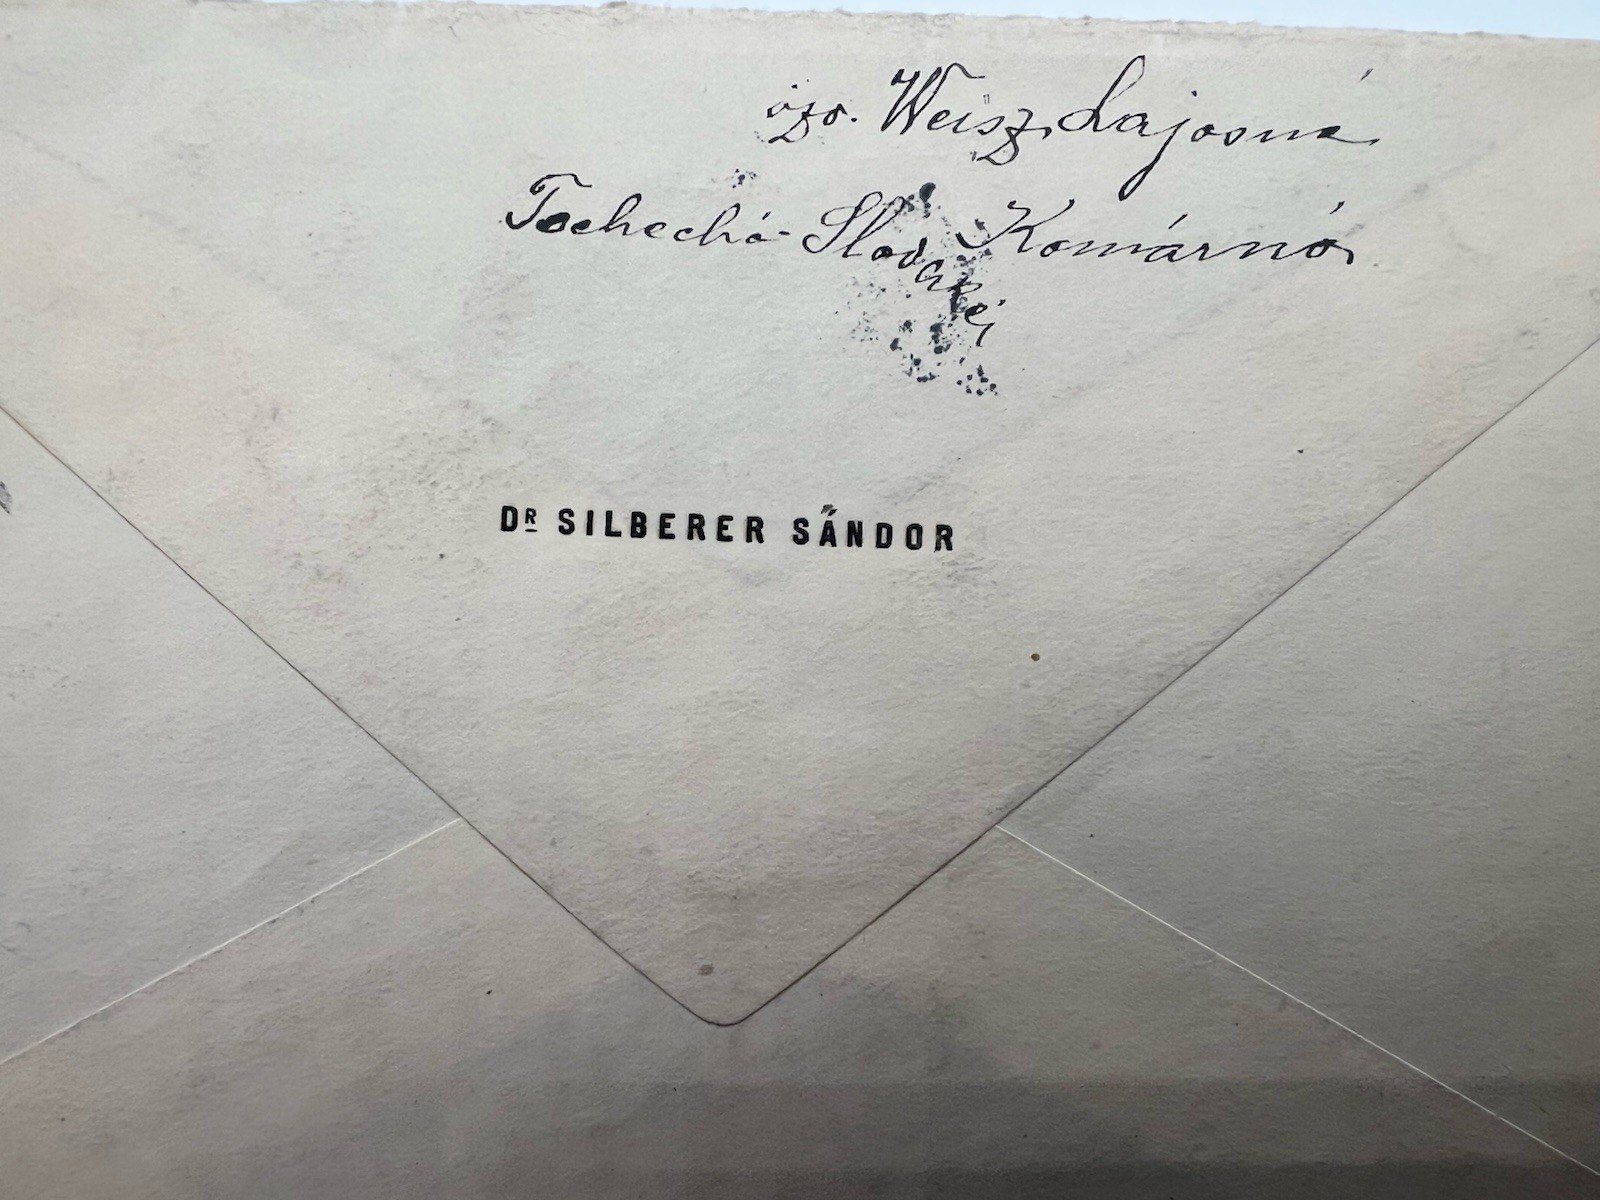 özv. Weisz Lajosné
Tschechó-Slovakei Komárnó
DR SILBERER SÁNDOR